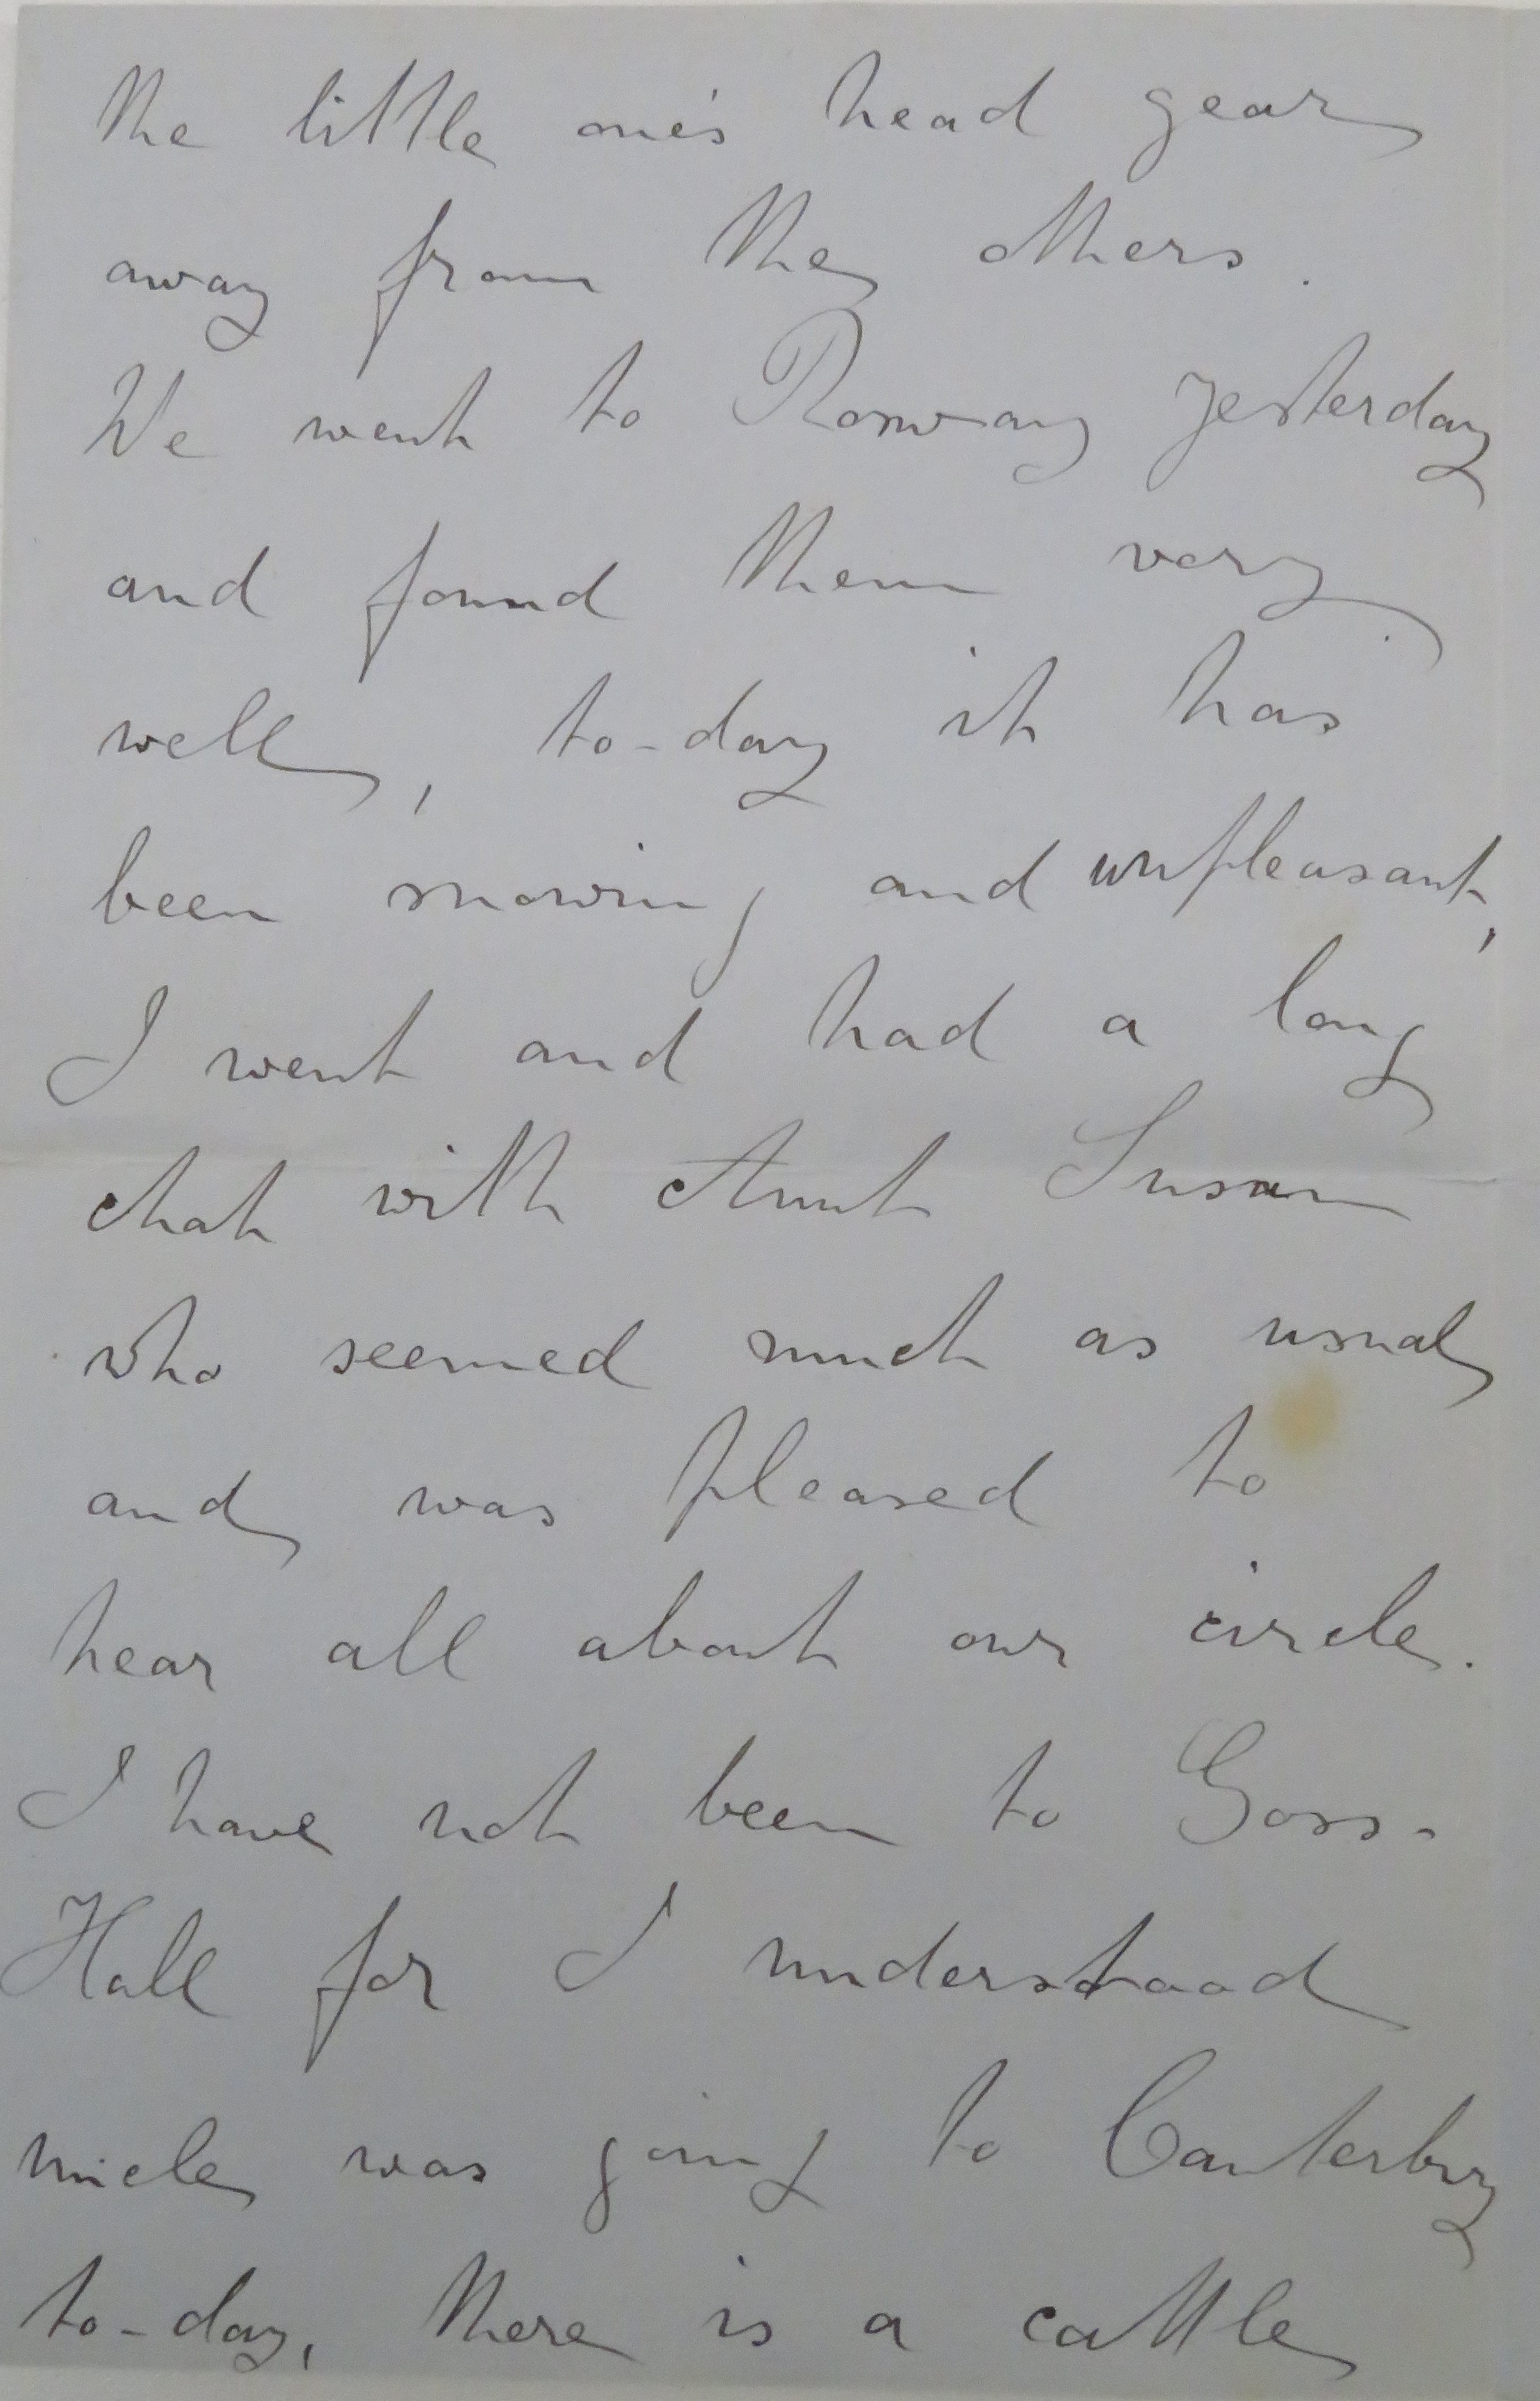 the little one's head gear
away from the others.
We went to Romway yesterday
and found them very
well, to-day it has
been snowing and unpleasant,
I went and had a long
chat with Aunt Susan
who seemed much as usual
and was pleased to
hear all about our circle.
I have not been to Goss-
Hall for I understood
uncle was going to Canterbury
to-day, there is a cattle